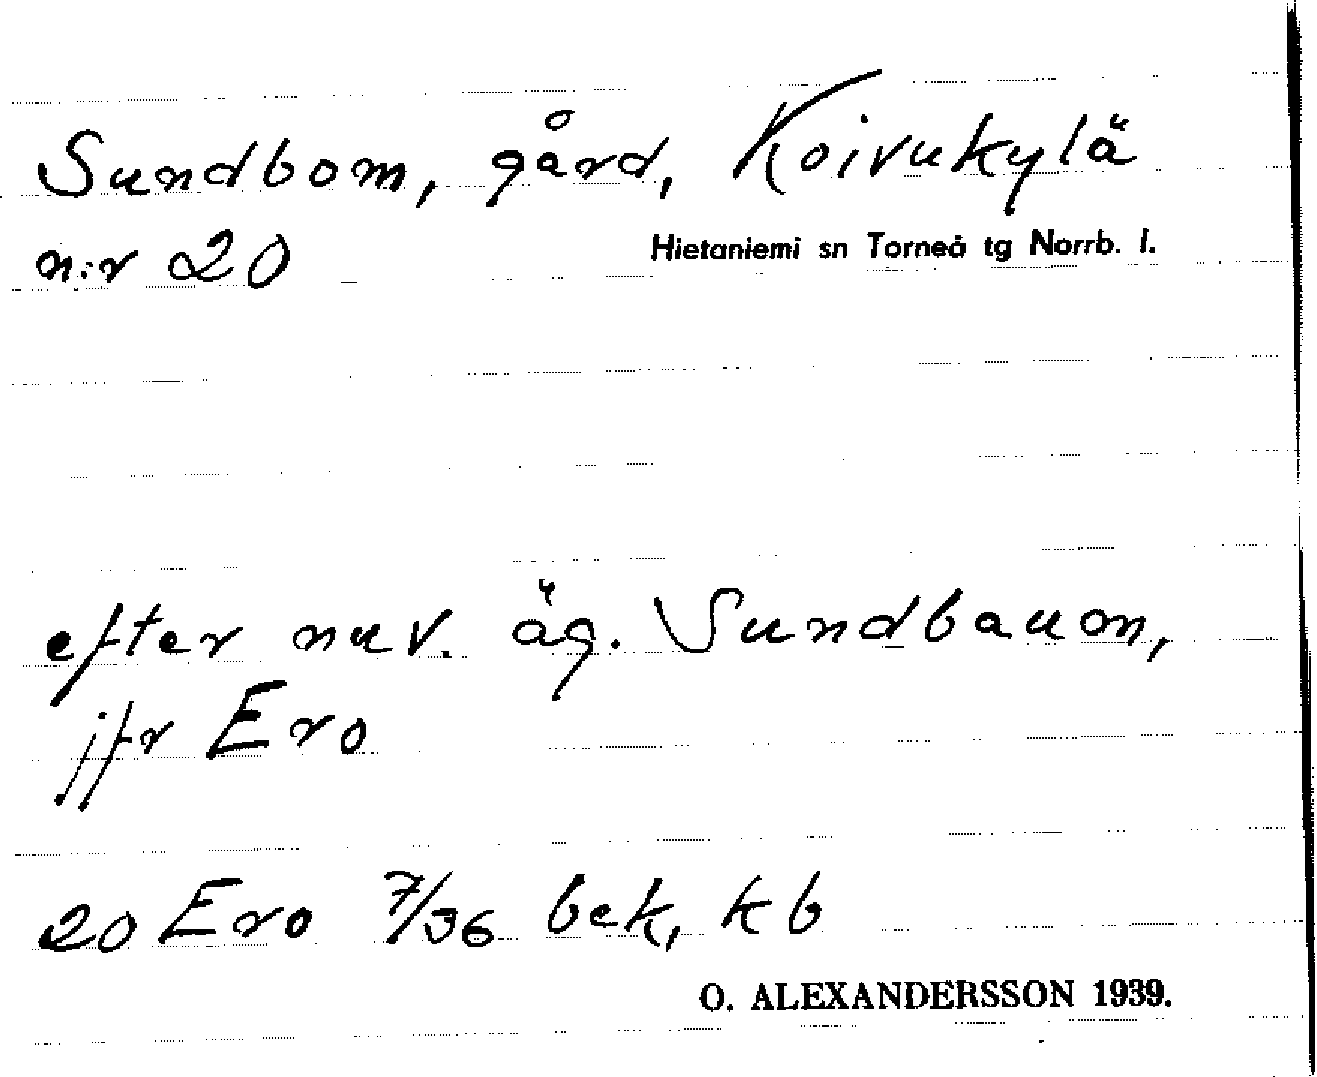 Sundbom, gård, Koivukylä
n:r 20 Hietaniemi sn Torneå tg Norrb. l.
efter nuv. äg. Sundbaum,
jfr Ero
20 Ero 7/36 bek, kb
O. ALEXANDERSSON 1939.